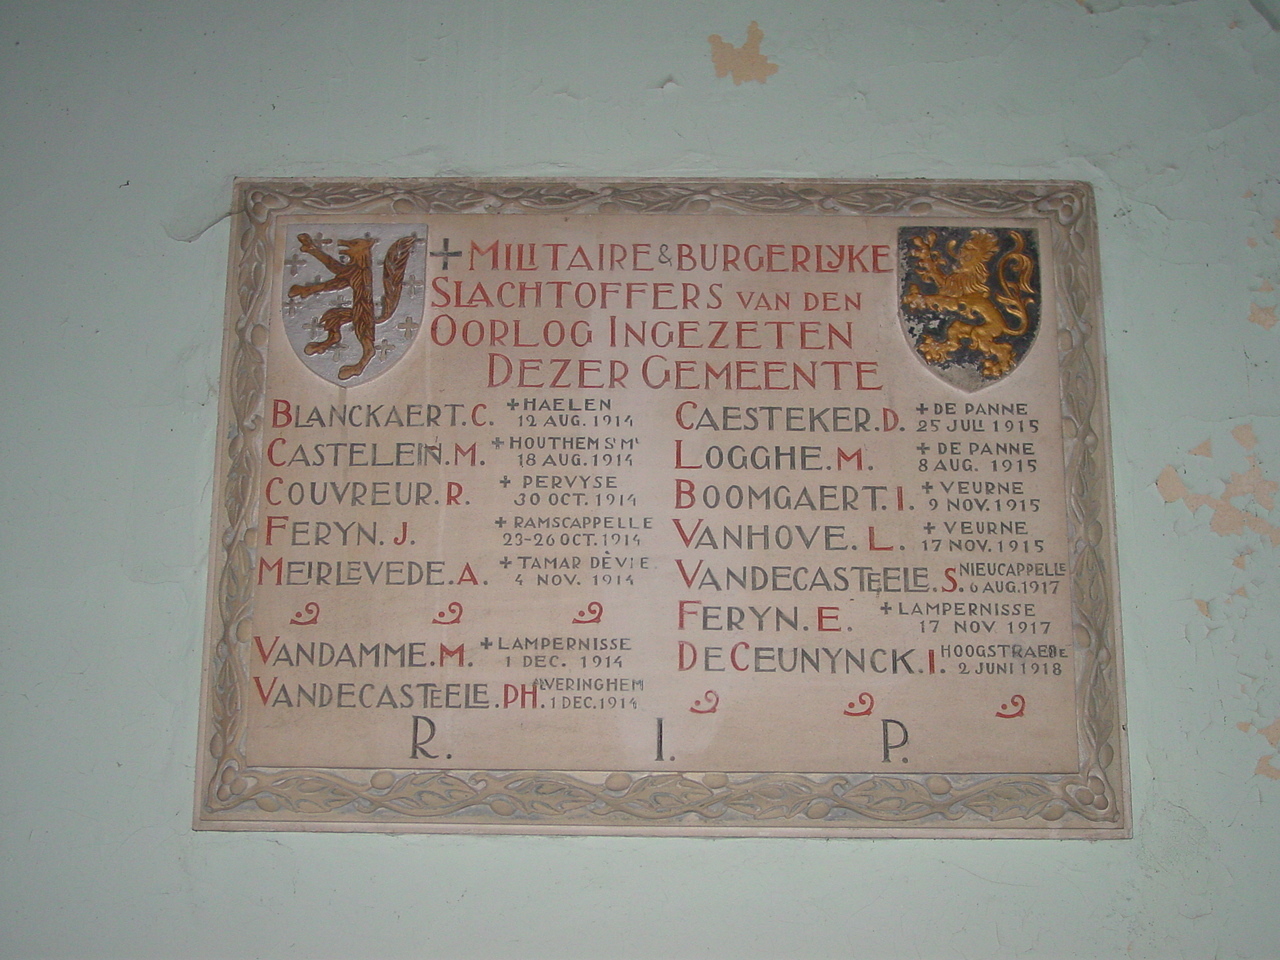 + MILITAIRE & BURGERLYKE
SLACHTOFFERS VAN DEN
OORLOG INGEZETEN
DEZER GEMEENTE
BLANCKAERT.C. + HAELEN 12 AUG. 1914
CASTELEIN.M. + HOUTHEM ST ML 18 AUG. 1914
COUVREUR.R. + PERVYSE 30 OCT. 1914
FERYN.J. + RAMSCAPPELLE 23-26 OCT. 1914
MEIRLEVEDE.A. + TAMAR DÈVIE. 4 NOV. 1914
VANDAMME.M. + LAMPERNISSE 1 DEC. 1914
VANDECASTEELE.PH. ALVERINGHEM 1 DEC. 1914
CAESTEKER.D. + DE PANNE 25 JULI 1915
LOGGHE.M. + DE PANNE 8 AUG. 1915
BOOMGAERT.I. + VEURNE 9 NOV. 1915
VANHOVE.L. + VEURNE 17 NOV. 1915
VANDECASTEELE.S. NIEUCAPPELLE 6 AUG. 1917
FERYN.E. + LAMPERNISSE 17 NOV. 1917
DECEUNYNCK.I. HOOGSTRAEDE 2 JUNI 1918
R. I. P.